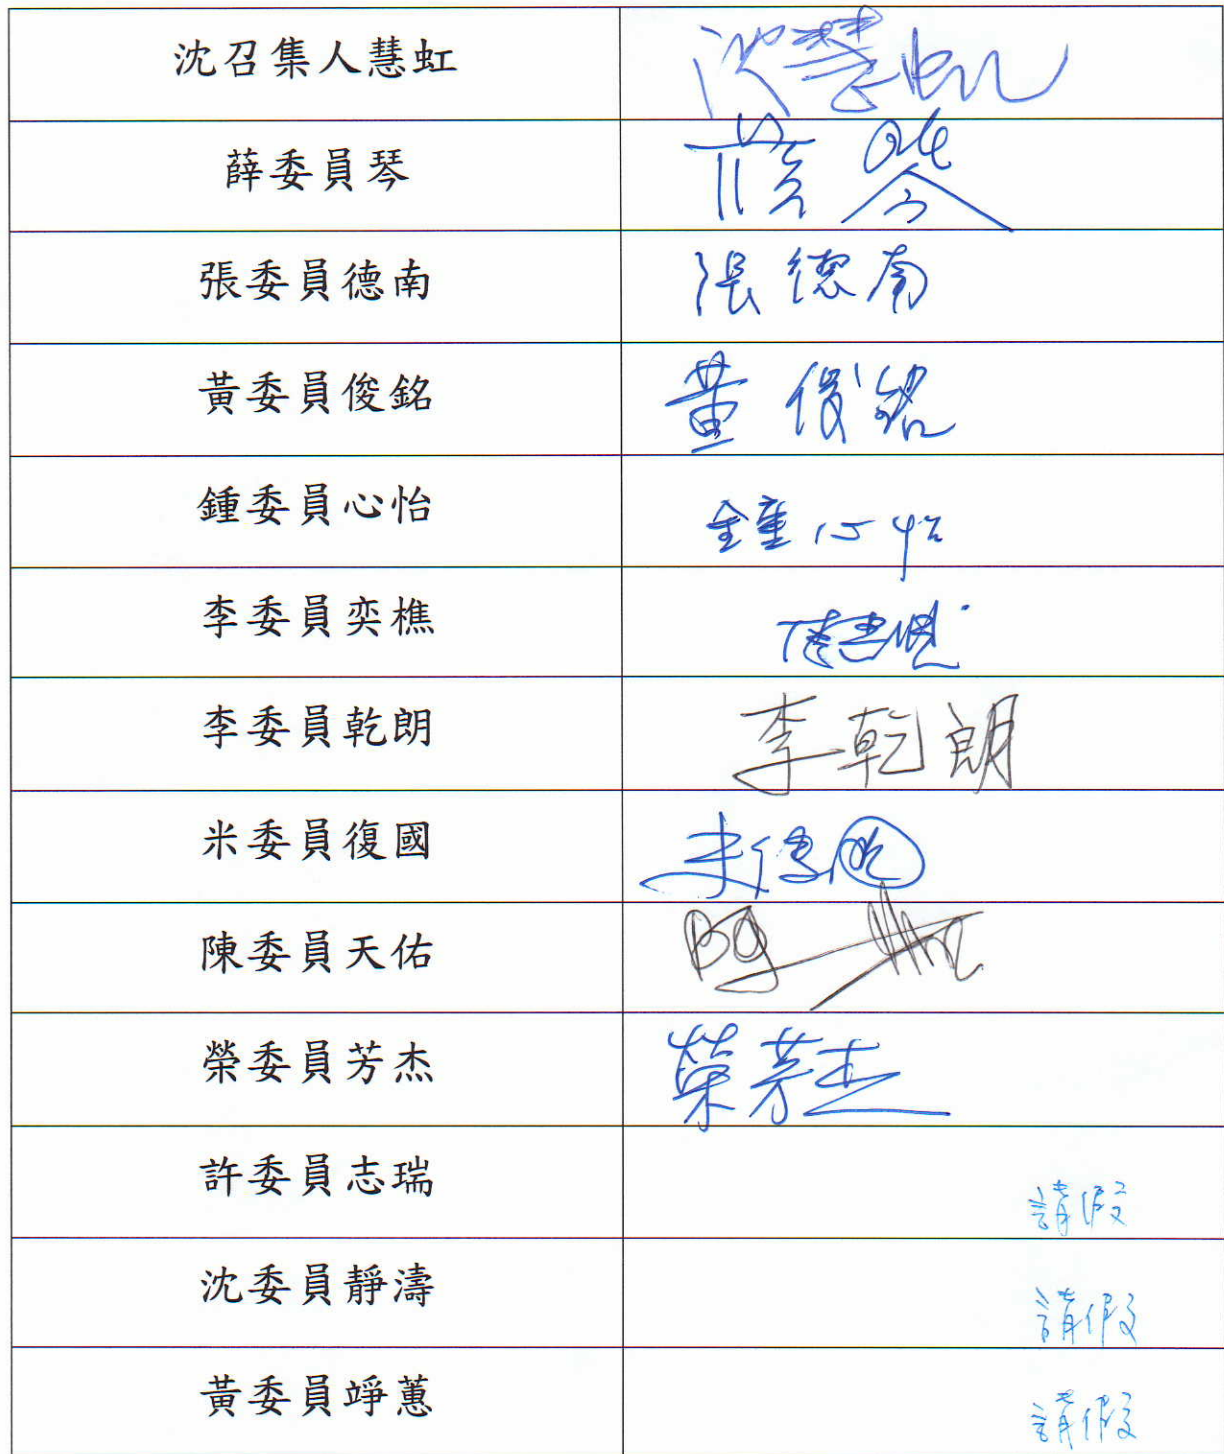 沈召集人慧虹 沈慧虹
薛委員琴 薛琴
張委員德南 張德南
黃委員俊銘 黃俊銘
鍾委員心怡 鍾心怡
李委員奕樵
李委員乾朗 李乾朗
米委員復國 米復國
陳委員天佑
榮委員芳杰 榮芳杰
許委員志瑞 請假
沈委員靜濤 請假
黃委員竫蕙 請假